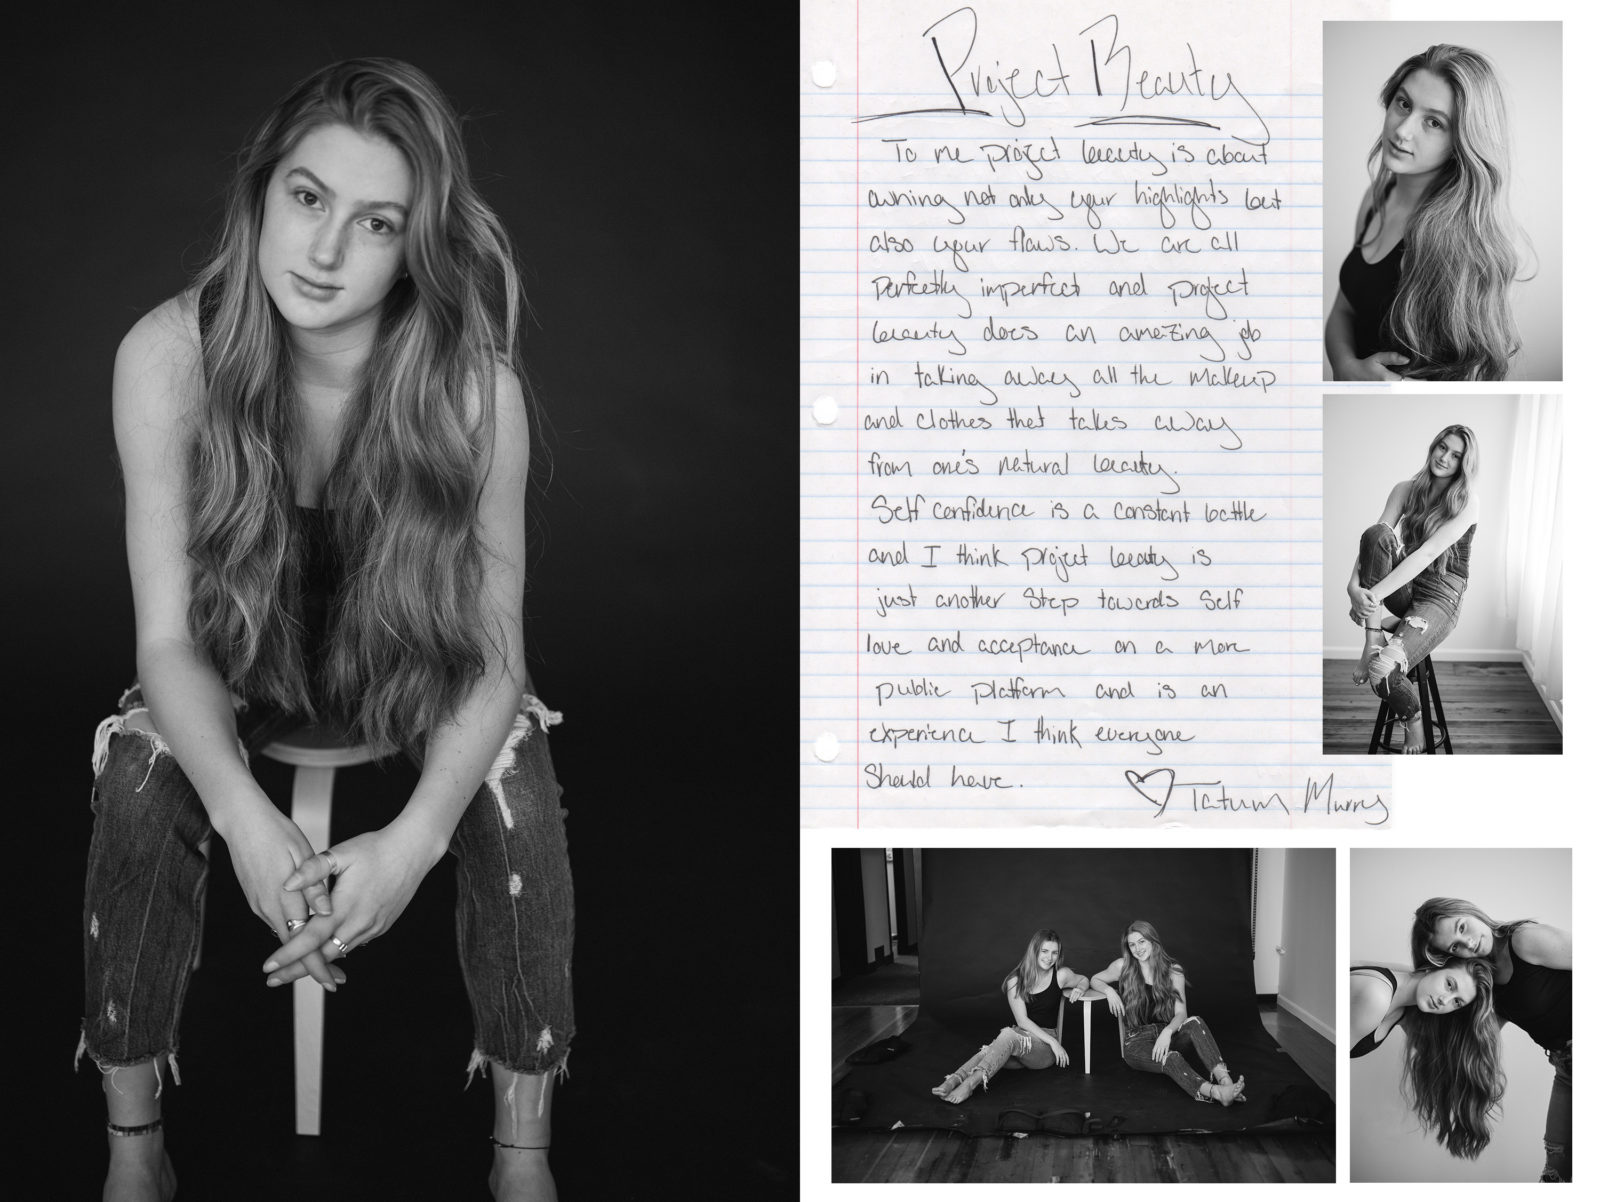 Project Beauty
To me project beauty is about
owning not only your highlights but
also your flaws. We are all
perfectly imperfect and project
beauty does an amazing job
in taking away all the makeup
and clothes that takes away
from one's natural beauty.
Self confidence is a constant battle
and I think project beauty is
just another step towards self
love and acceptance on a more
public platform and is an
experience I think everyone
should have.
Tatum Murry